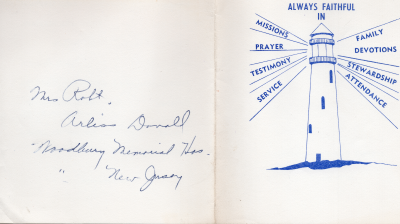 Mrs Robt.
Arliss Donald
"Woodbury Memorial Hos.
" New Jersey
ALWAYS FAITHFUL
IN
MISSIONS
PRAYER
TESTIMONY
SERVICE
FAMILY
DEVOTIONS
STEWARDSHIP
ATTENDANCE